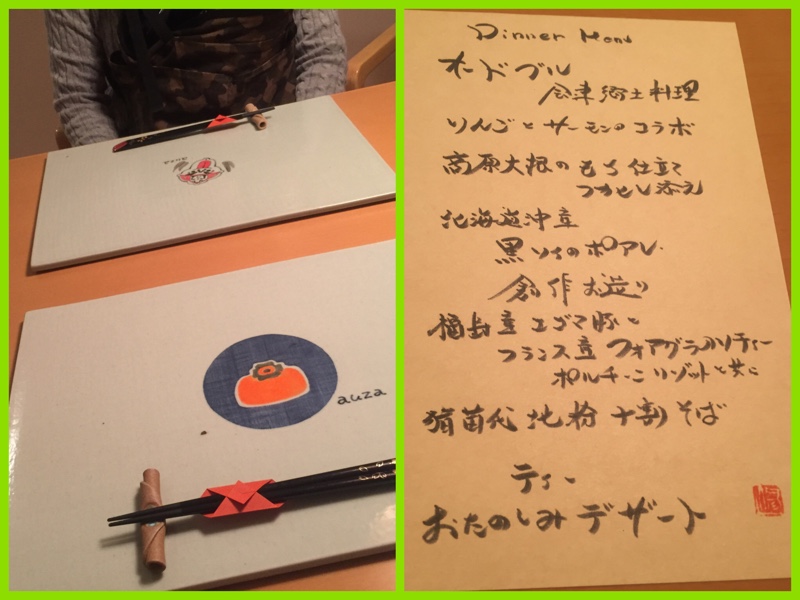 auza
Dinner Menu
オードブル
会津郷土料理
りんごとサーモンのコラボ
高原大根のもち仕立て
北海道沖産
黒ソイのポアレ
創作お造り
福島産エゴマ豚と
フランス産フォアグラのソティー
ポルチーニリゾットと共に
猪苗代地粉十割そば
ティー
おたのしみデザート